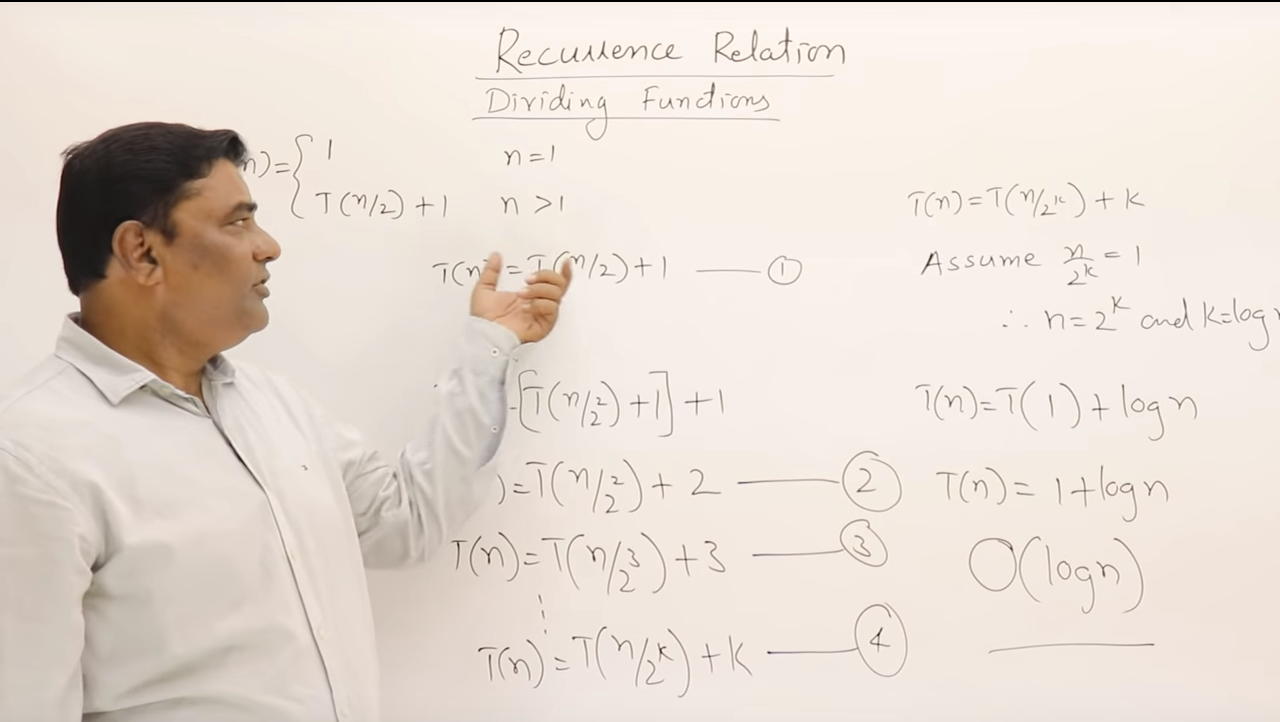 Recurrence Relation
Dividing Functions
n) = { 1 n = 1
T(n/2) + 1 n > 1
T(n) = T(n/2) + 1 —— ①
[T(n/2²) + 1] + 1
) = T(n/2²) + 2 —— ②
T(n) = T(n/2³) + 3 —— ③
⋮
T(n) = T(n/2ᵏ) + k —— ④
T(n) = T(n/2ᵏ) + k
Assume n/2ᵏ = 1
∴ n = 2ᵏ and k = log n
T(n) = T(1) + log n
T(n) = 1 + log n
O(log n)